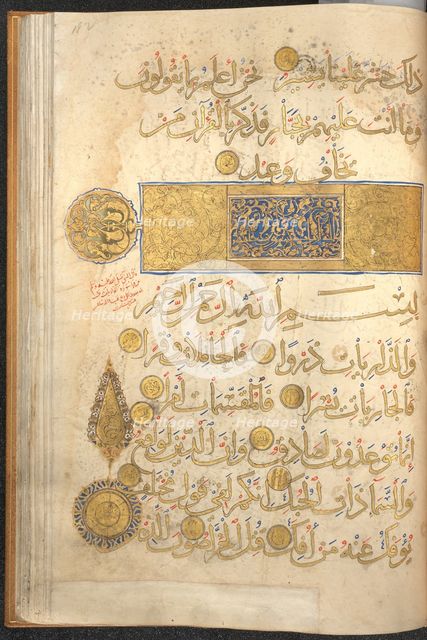 182
ذلك حشر علينا يسير نحن أعلم بما يقولون
وما أنت عليهم بجبار فذكر بالقرآن من
يخاف وعيد
بسم الله الرحمن الرحيم
والذاريات ذروا فالحاملات وقرا
فالجاريات يسرا فالمقسمات أمرا
إنما توعدون لصادق وإن الدين لواقع
والسماء ذات الحبك إنكم لفي قول مختلف
يؤفك عنه من أفك قتل الخراصون الذين
Heritage